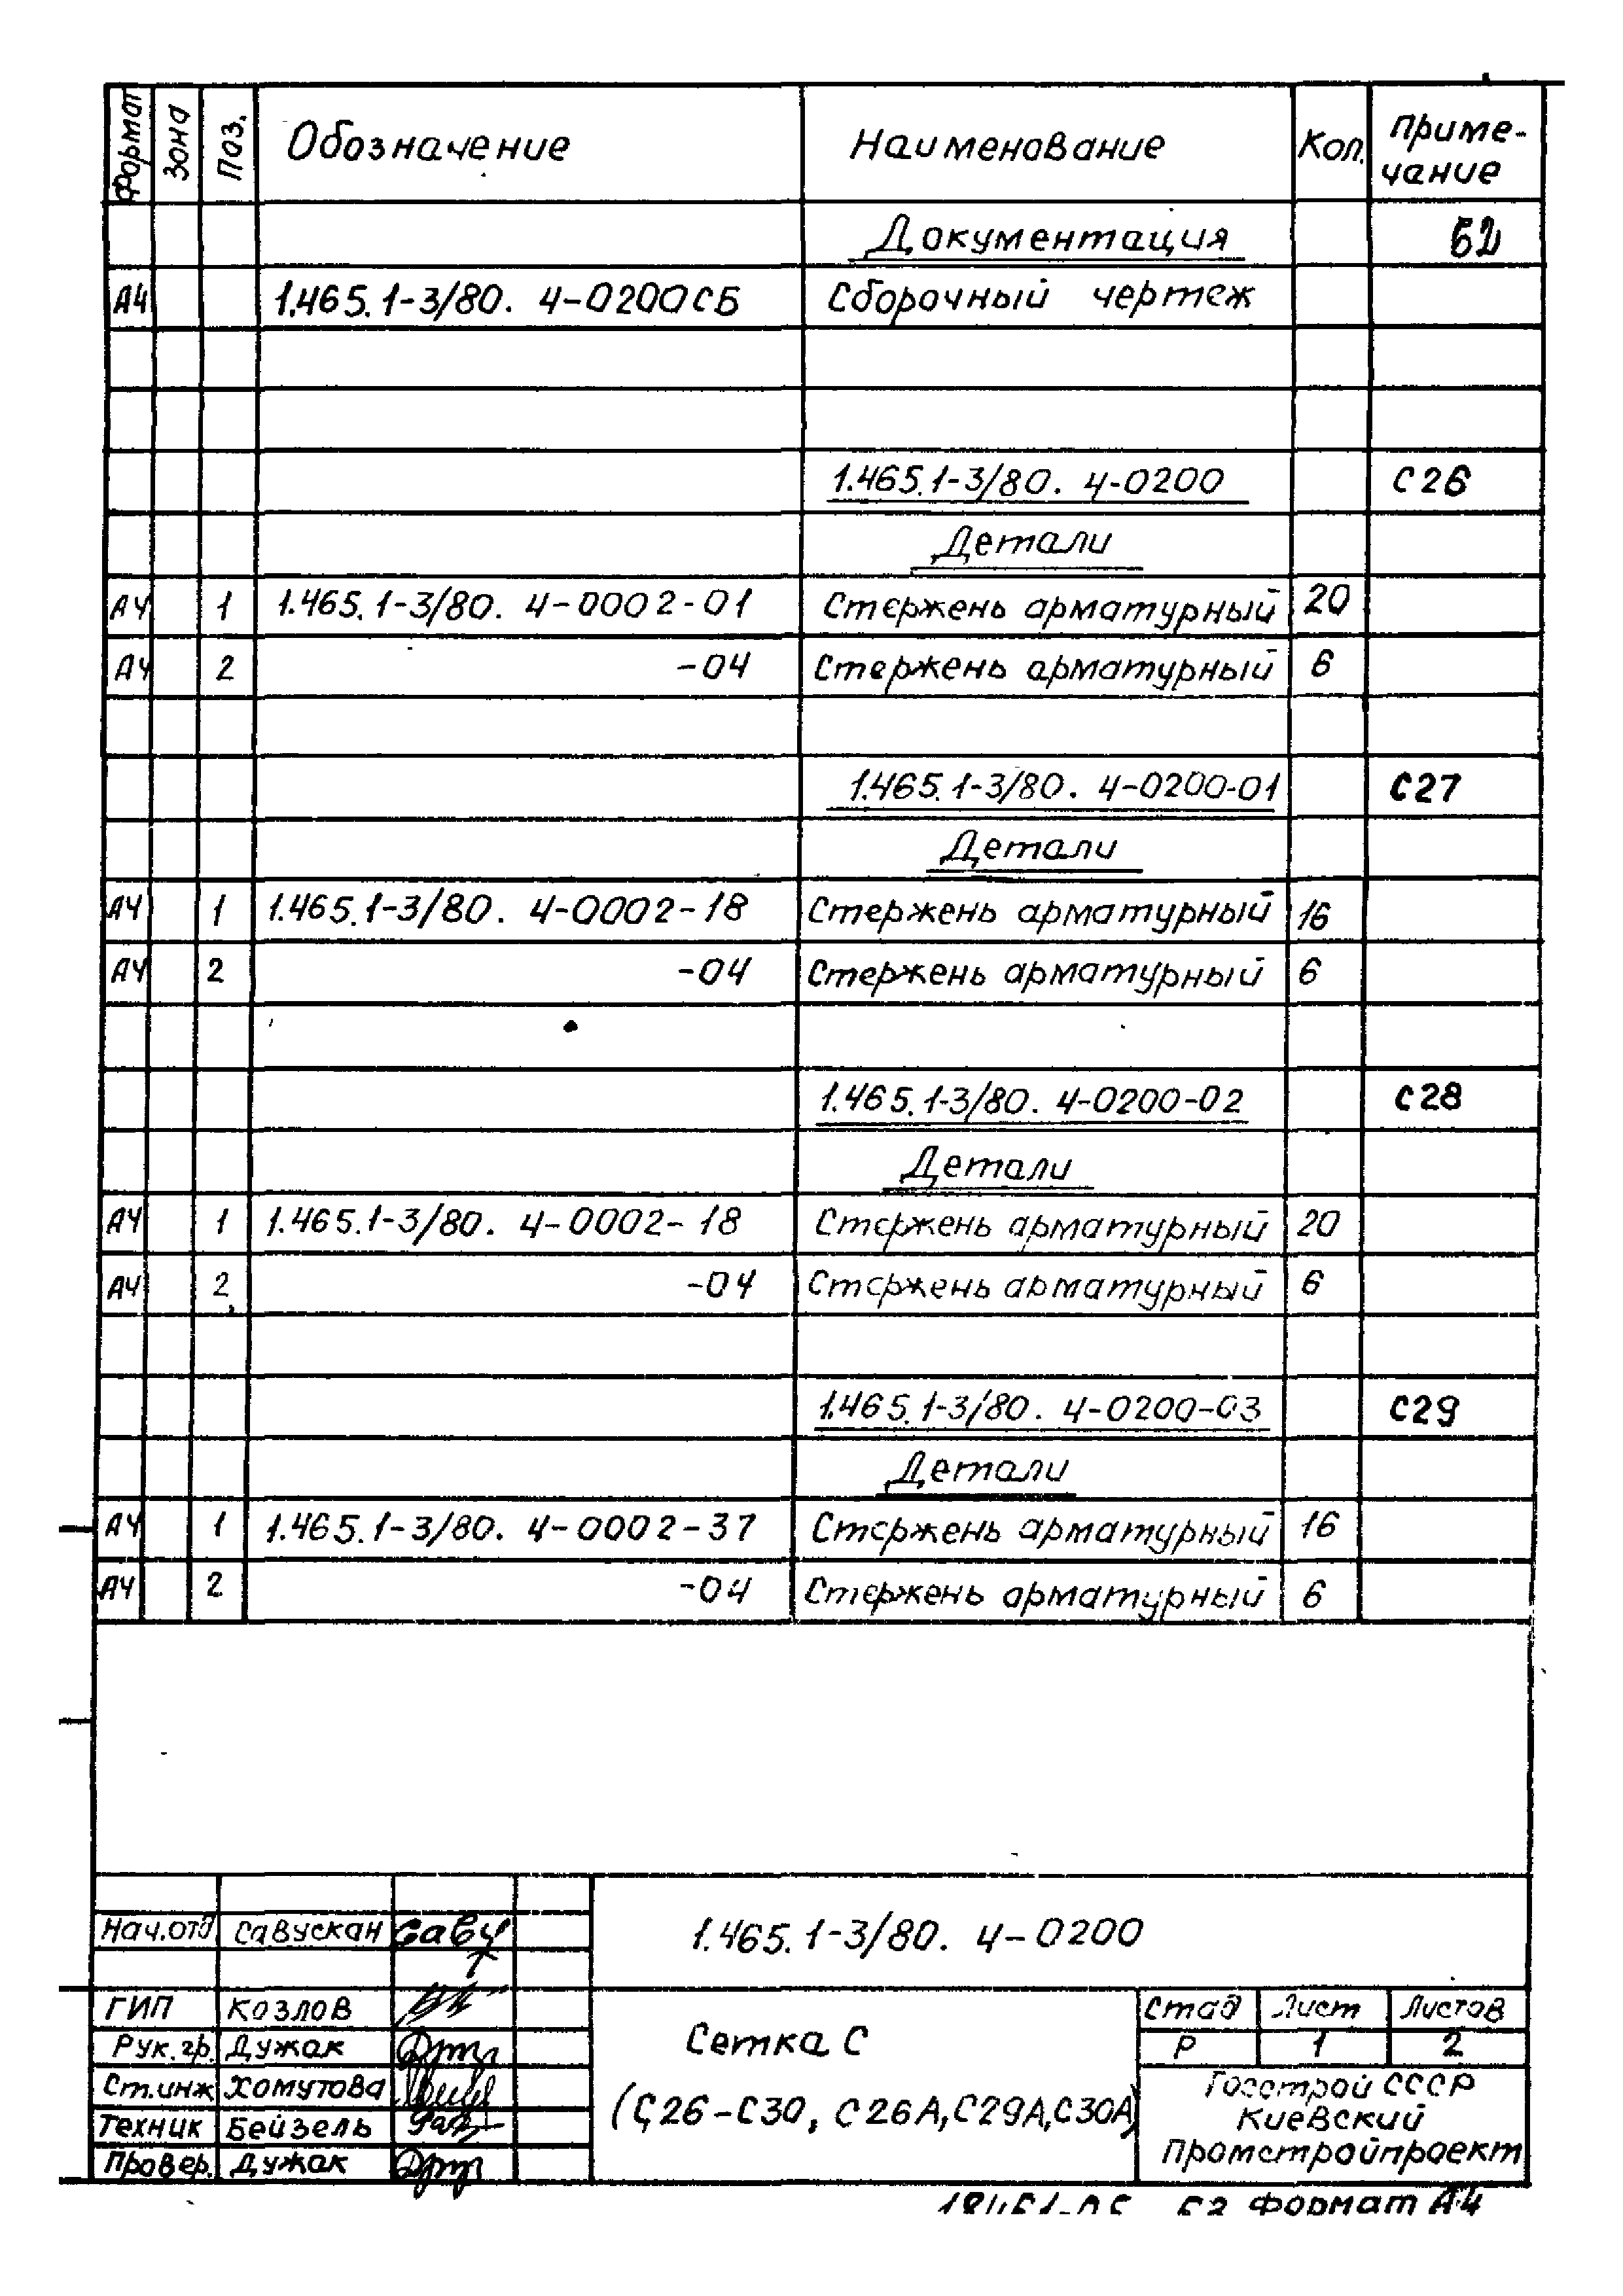 Формат Зона Поз. Обозначение Наименование Кол. Приме-
чание
Документация 52
А4 1.465.1-3/80. 4-0200СБ Сборочный чертеж
1.465.1-3/80. 4-0200 С26
Детали
А4 1 1.465.1-3/80. 4-0002-01 Стержень арматурный 20
А4 2 -04 Стержень арматурный 6
1.465.1-3/80. 4-0200-01 С27
Детали
А4 1 1.465.1-3/80. 4-0002-18 Стержень арматурный 16
А4 2 -04 Стержень арматурный 6
1.465.1-3/80. 4-0200-02 С28
Детали
А4 1 1.465.1-3/80. 4-0002-18 Стержень арматурный 20
А4 2 -04 Стержень арматурный 6
1.465.1-3/80. 4-0200-03 С29
Детали
А4 1 1.465.1-3/80. 4-0002-37 Стержень арматурный 16
А4 2 -04 Стержень арматурный 6
Нач.отд Савускан
1.465.1-3/80. 4-0200
ГИП Козлов
Рук.гр. Дужак
Ст.инж Хомутова
Техник Бейзель
Провер. Дужак
Сетка С
(С26-С30, С26А, С29А, С30А)
Стад Лист Листов
Р 1 2
Госстрой СССР
Киевский
Промстройпроект
Формат А4